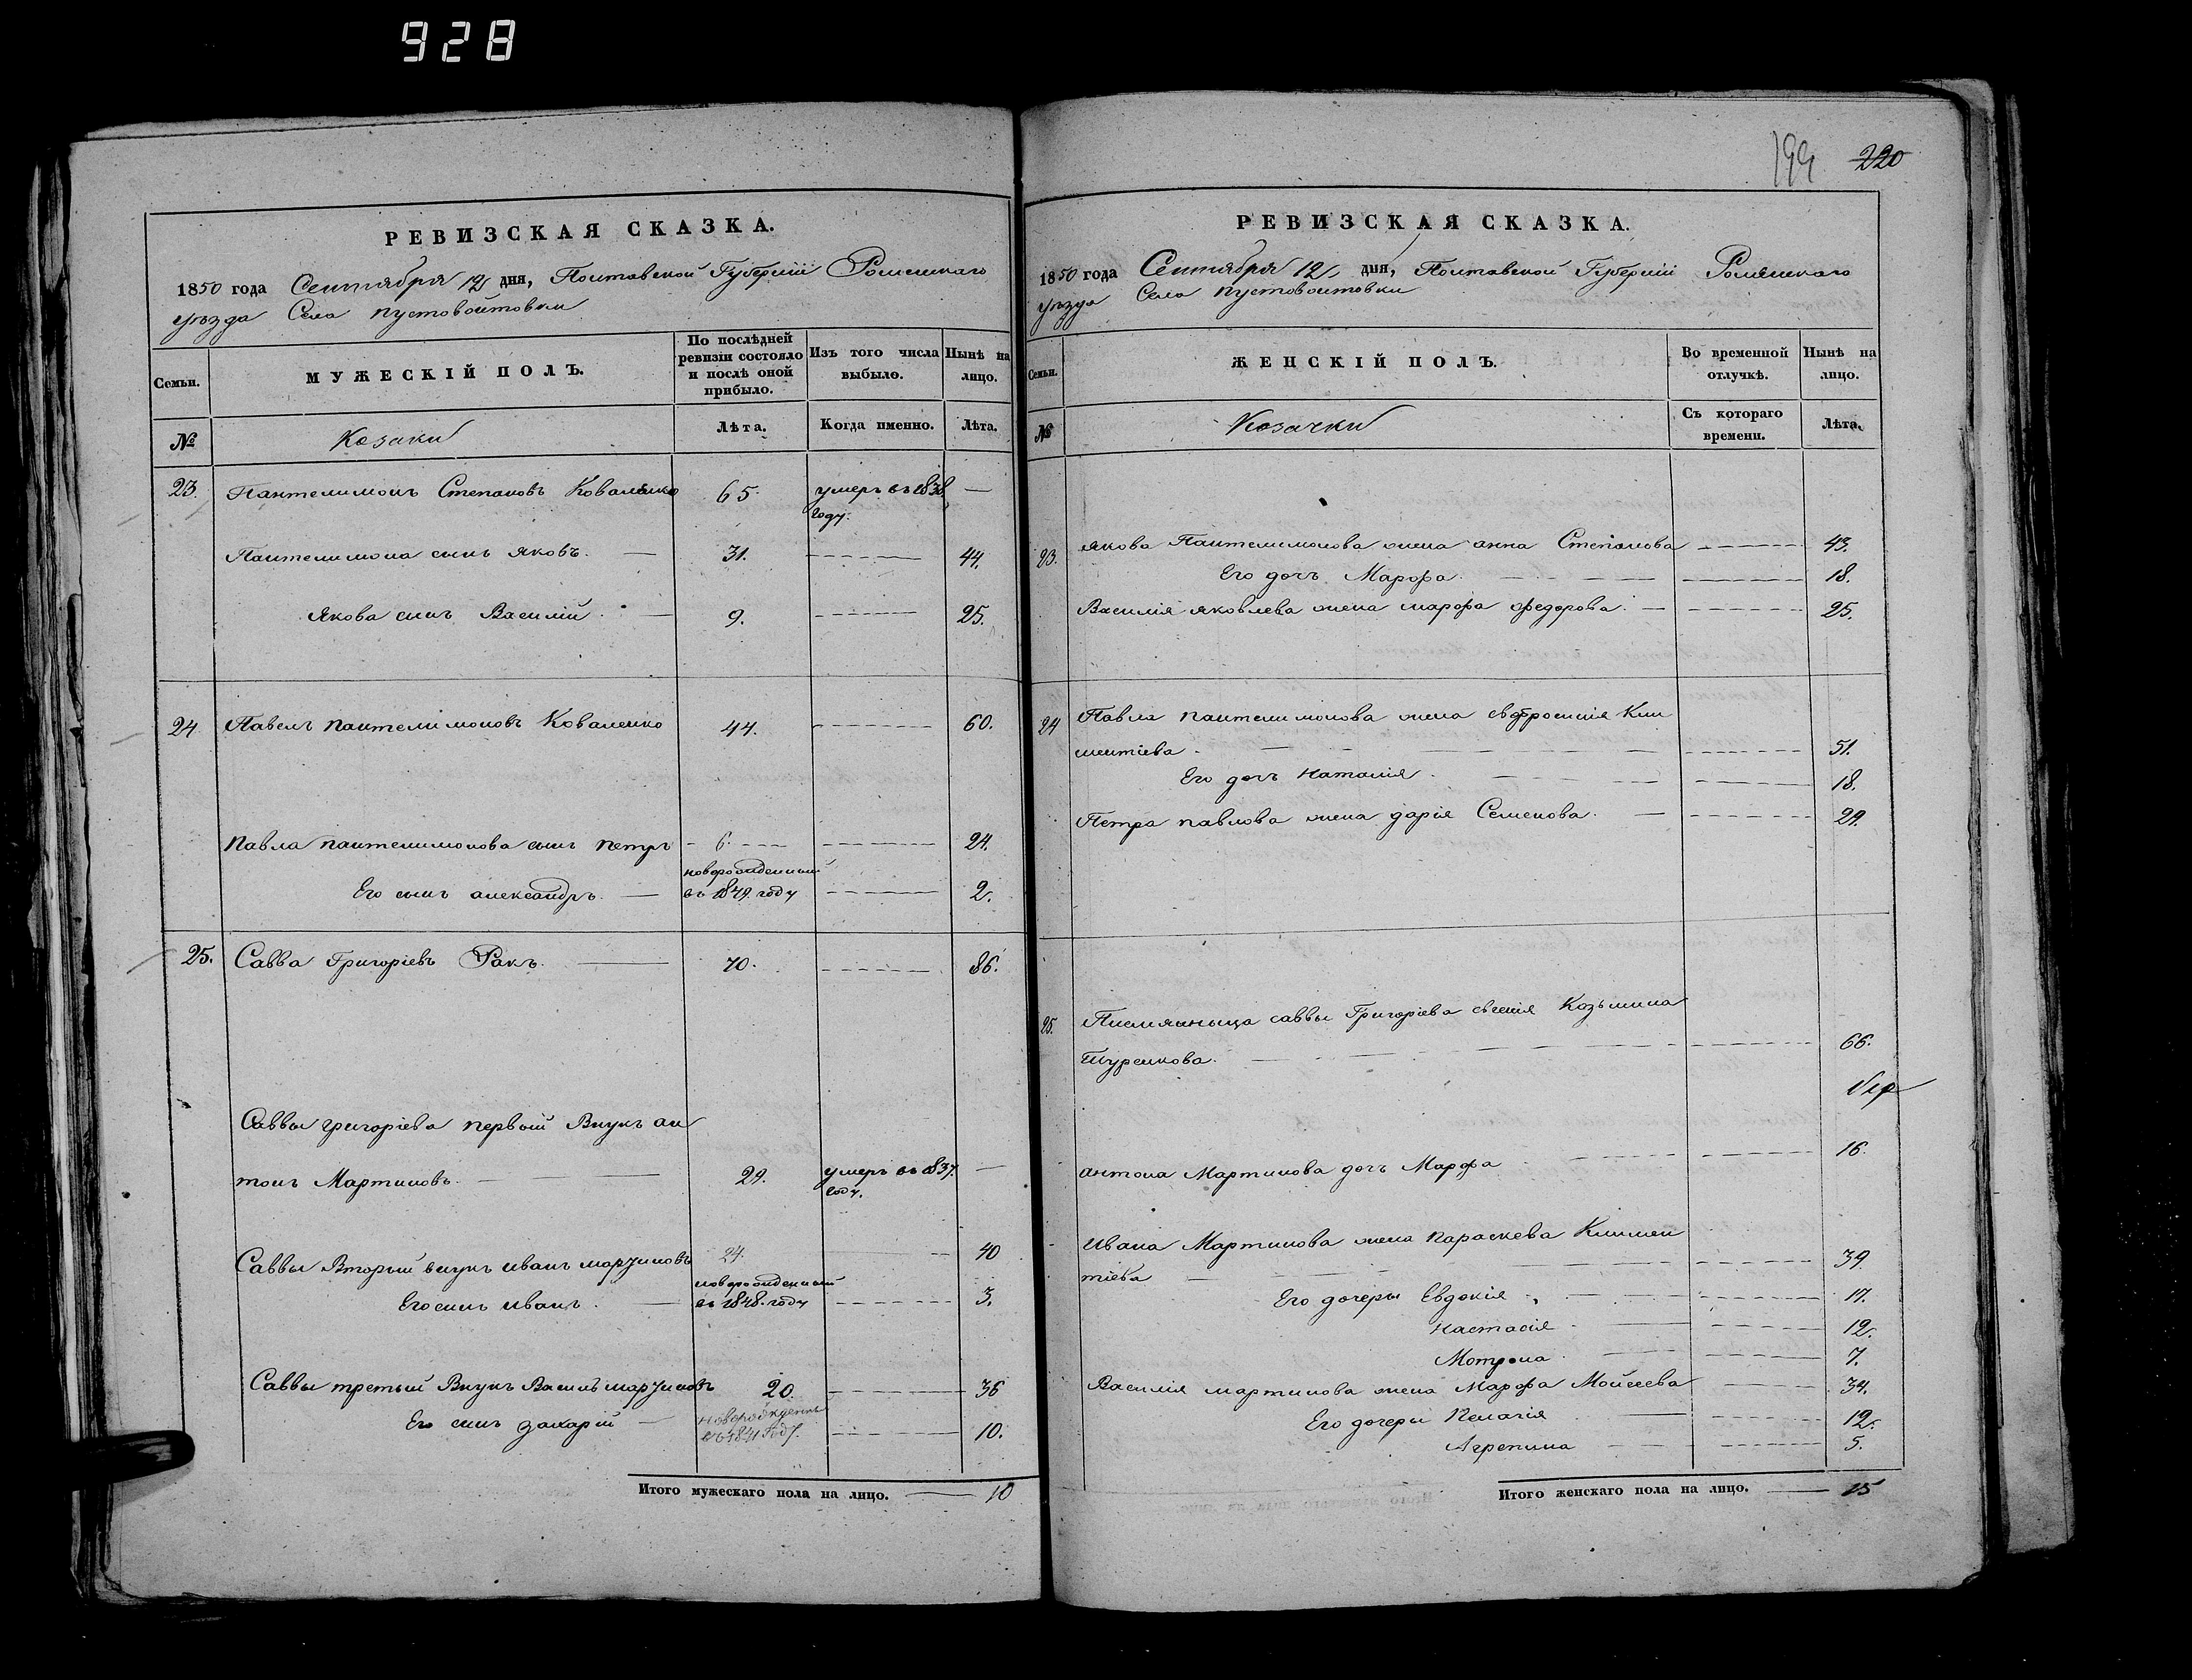 928
РЕВИЗСКАЯ СКАЗКА.
1850 года Сентября 12 дня, Полтавской Губерніи Роменскаго
уезда Села пустовойтовки
Семьи. МУЖЕСКІЙ ПОЛЪ. По послѣдней ревизіи состояло и послѣ оной прибыло. Изъ того числа выбыло. Нынѣ на лицо.
№ Козаки Лѣта. Когда именно. Лѣта.
23. Пантелимонъ Степановъ Коваленко 65. умеръ въ 1838 году. —
Пантелимона сынъ яковъ. 31. 44.
Якова сынъ Василій 9. 25.
24 Павелъ пантелимоновъ Коваленко 44. 60.
павла пантелимонова сынъ петръ 6. 24.
Его сынъ александръ. новорожденный въ 1849. году 2.
25. Савва Григоріевъ Ракъ. 70. 86.
Саввы григоріева первый Внукъ ан
тонъ Мартиновъ. 29. умеръ въ 1837. году. —
Саввы Вторый внукъ иванъ мартиновъ 24. 40
Его сынъ иванъ. новорожденный въ 1848. году 3.
Саввы третый Внукъ Василь мартиновъ 20. 36
Его сынъ захарій новорожденн въ 1841 году. 10.
Итого мужескаго пола на лицо. 10
199 220
РЕВИЗСКАЯ СКАЗКА.
1850 года Сентября 12 дня, Полтавской Губерніи Роменскаго
уезда Села пустовойтовки
Семьи. ЖЕНСКІЙ ПОЛЪ. Во временной отлучкѣ. Нынѣ на лицо.
№ Козачки Съ котораго времени. Лѣта.
23. якова Пантелимонова жена анна Степанова 43.
Его дочъ Марфа. 18.
Василія яковлева жена марфа федорова. 25.
24 Павла пантелимонова жена евфросинія Кли
ментіева. 51.
Его дочъ наталія. 18.
Петра павлова жена дарія Семенова. 29.
25. Племяныца саввы Григоріева Козьмина
66.
антона Мартинова дочъ Марфа 16.
ивана Мартинова жена параскева Климен
тіева 39.
Его дочеры Евдокія 17.
настасія 12.
Мотрона 7.
Василія мартинова жена Марфа Мойсеева 34.
Его дочеры Пелагія 12.
Агрепина 5.
Итого женскаго пола на лицо. 15